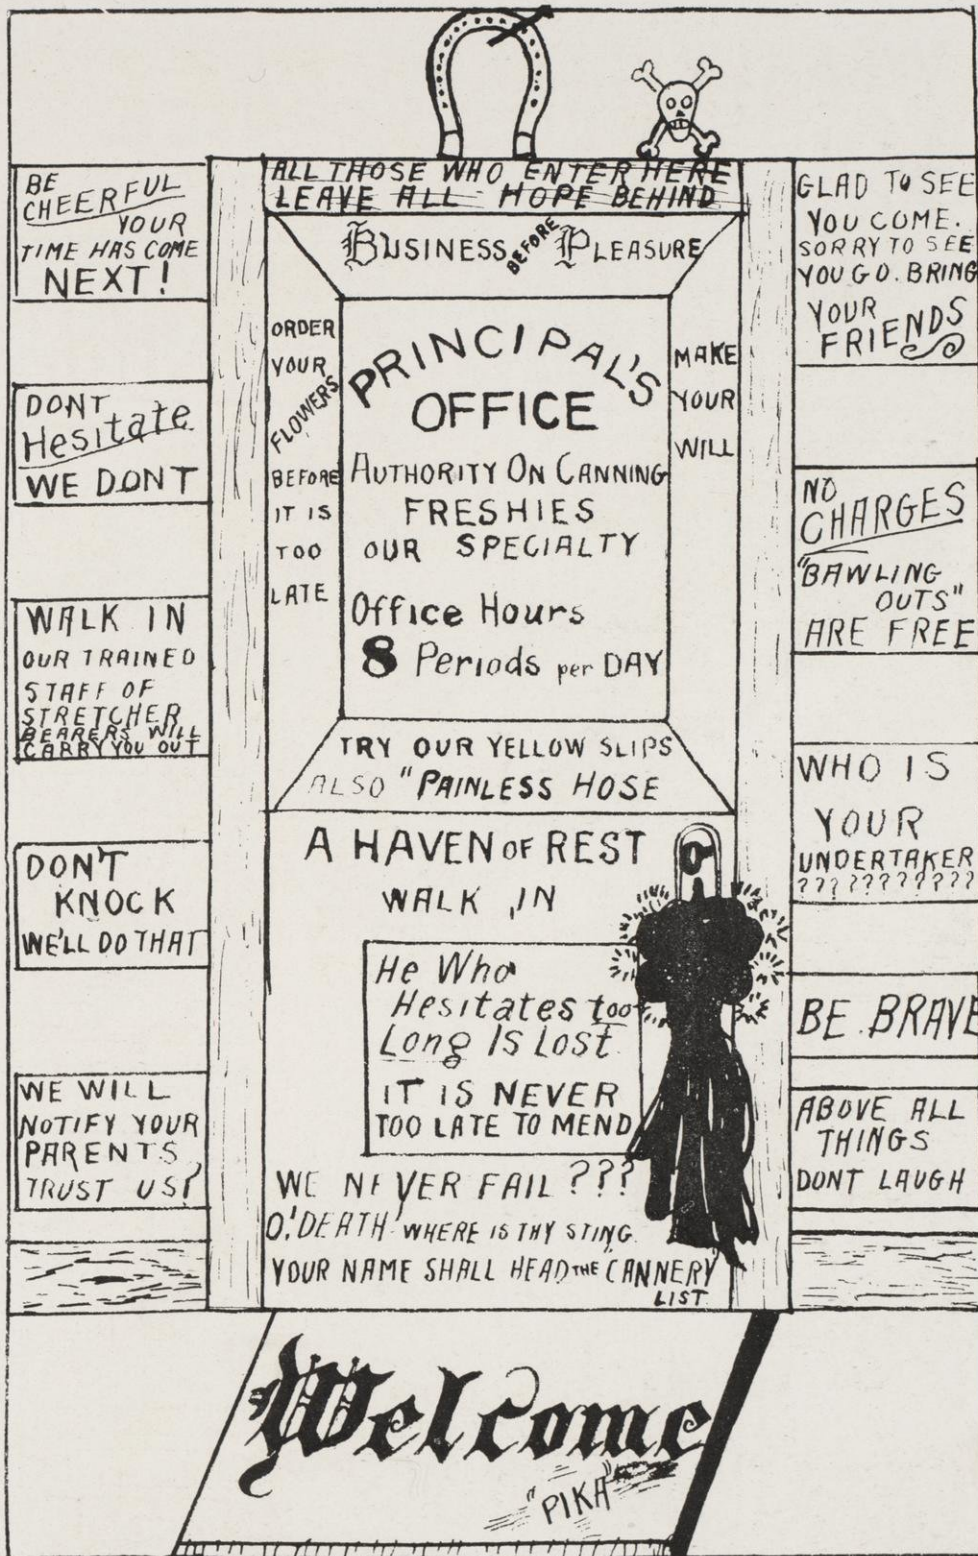 ALL THOSE WHO ENTER HERE
LEAVE ALL HOPE BEHIND
BUSINESS BEFORE PLEASURE
BE
CHEERFUL
YOUR
TIME HAS COME
NEXT!
DONT
Hesitate
WE DONT
WALK IN
OUR TRAINED
STAFF OF
STRETCHER
BEARERS WILL
CARRY YOU OUT
DON'T
KNOCK
WE'LL DO THAT
WE WILL
NOTIFY YOUR
PARENTS
TRUST US!
ORDER
YOUR
FLOWERS
BEFORE
IT IS
TOO
LATE
PRINCIPAL'S
OFFICE
AUTHORITY ON CANNING
FRESHIES
OUR SPECIALTY
Office Hours
8 Periods per DAY
MAKE
YOUR
WILL
TRY OUR YELLOW SLIPS
ALSO "PAINLESS HOSE
A HAVEN OF REST
WALK IN
He Who
Hesitates too
Long Is Lost
IT IS NEVER
TOO LATE TO MEND
WE NEVER FAIL ???
O! DEATH! WHERE IS THY STING
YOUR NAME SHALL HEAD THE CANNERY
LIST
GLAD TO SEE
YOU COME.
SORRY TO SEE
YOU GO. BRING
YOUR
FRIENDS
NO
CHARGES
"BAWLING
OUTS"
ARE FREE
WHO IS
YOUR
UNDERTAKER
???????????
BE BRAVE
ABOVE ALL
THINGS
DONT LAUGH
Welcome
"PIKA"